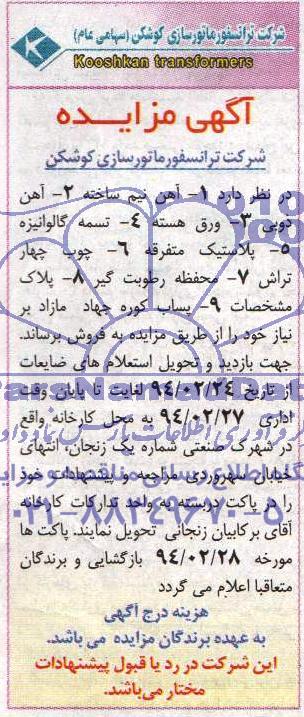 شرکت ترانسفورماتورسازی کوشکن (سهامی عام)
Kooshkan transformers
آگهی مزایـــده
شرکت ترانسفورماتورسازی کوشکن
در نظر دارد ۱- آهن نیم ساخته ۲- آهن
ذوبی ۳- ورق هسته ۴- تسمه گالوانیزه
۵- پلاستیک متفرقه ۶- چوب چهار
تراش ۷- محفظه رطوبت گیر ۸- پلاک
مشخصات ۹- پساب کوره جهاد مازاد بر
نیاز خود را از طریق مزایده به فروش برساند.
جهت بازدید و تحویل استعلام های ضایعات
از تاریخ ۹۴/۰۲/۲۴ لغایت تا پایان وقت
اداری ۹۴/۰۲/۲۷ به محل کارخانه واقع
در شهرک صنعتی شماره یک زنجان، انتهای
خیابان سهروردی مراجعه و پیشنهادات خود
را در پاکت دربسته به واحد تدارکات کارخانه
آقای برکابیان زنجانی تحویل نمایند. پاکت ها
مورخه ۹۴/۰۲/۲۸ بازگشایی و برندگان
متعاقبا اعلام می گردد
هزینه درج آگهی
به عهده برندگان مزایده می باشد.
این شرکت در رد یا قبول پیشنهادات
مختار می‌باشد.
۰۲۱-۸۸۳۴۹۶۷۰-۵